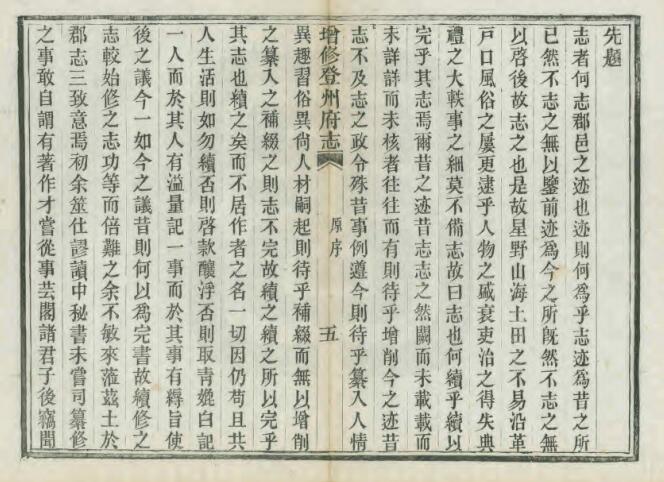 先題
志者何志郡邑之迹也迹則何為乎志迹為昔之所
已然不志之無以鑒前迹為今之所旣然不志之無
以啓後故志之也是故星野山海土田之不易沿革
戸口風俗之屢更建乎人物之盛衰吏治之得失典
禮之大軼事之細莫不備志故曰志也何續乎續以
完乎其志焉爾昔之迹昔志志之然闕而未載載而
未詳詳而未核者往往而有則待乎增削今之迹昔
志不及志之政令殊昔事例遵今則待乎纂入人情
增修登州府志
原序
五
異趣習俗異尙人材嗣起則待乎補綴而無以增削
之纂入之補綴之則志不完故續之續之所以完乎
其志也續之矣而不居作者之名一切因仍苟且共
人生活則如勿續否則啓款釀浮否則取靑媲白記
一人而於其人有溢量記一事而於其事有釋旨使
後之議今一如今之議昔則何以為完書故續修之
志較始修之志功等而倍難之余不敏來蒞茲土於
郡志三致意焉初余筮仕謬讀中秘書未嘗司纂修
之事敢自謂有著作才嘗從事芸閣諸君子後竊聞